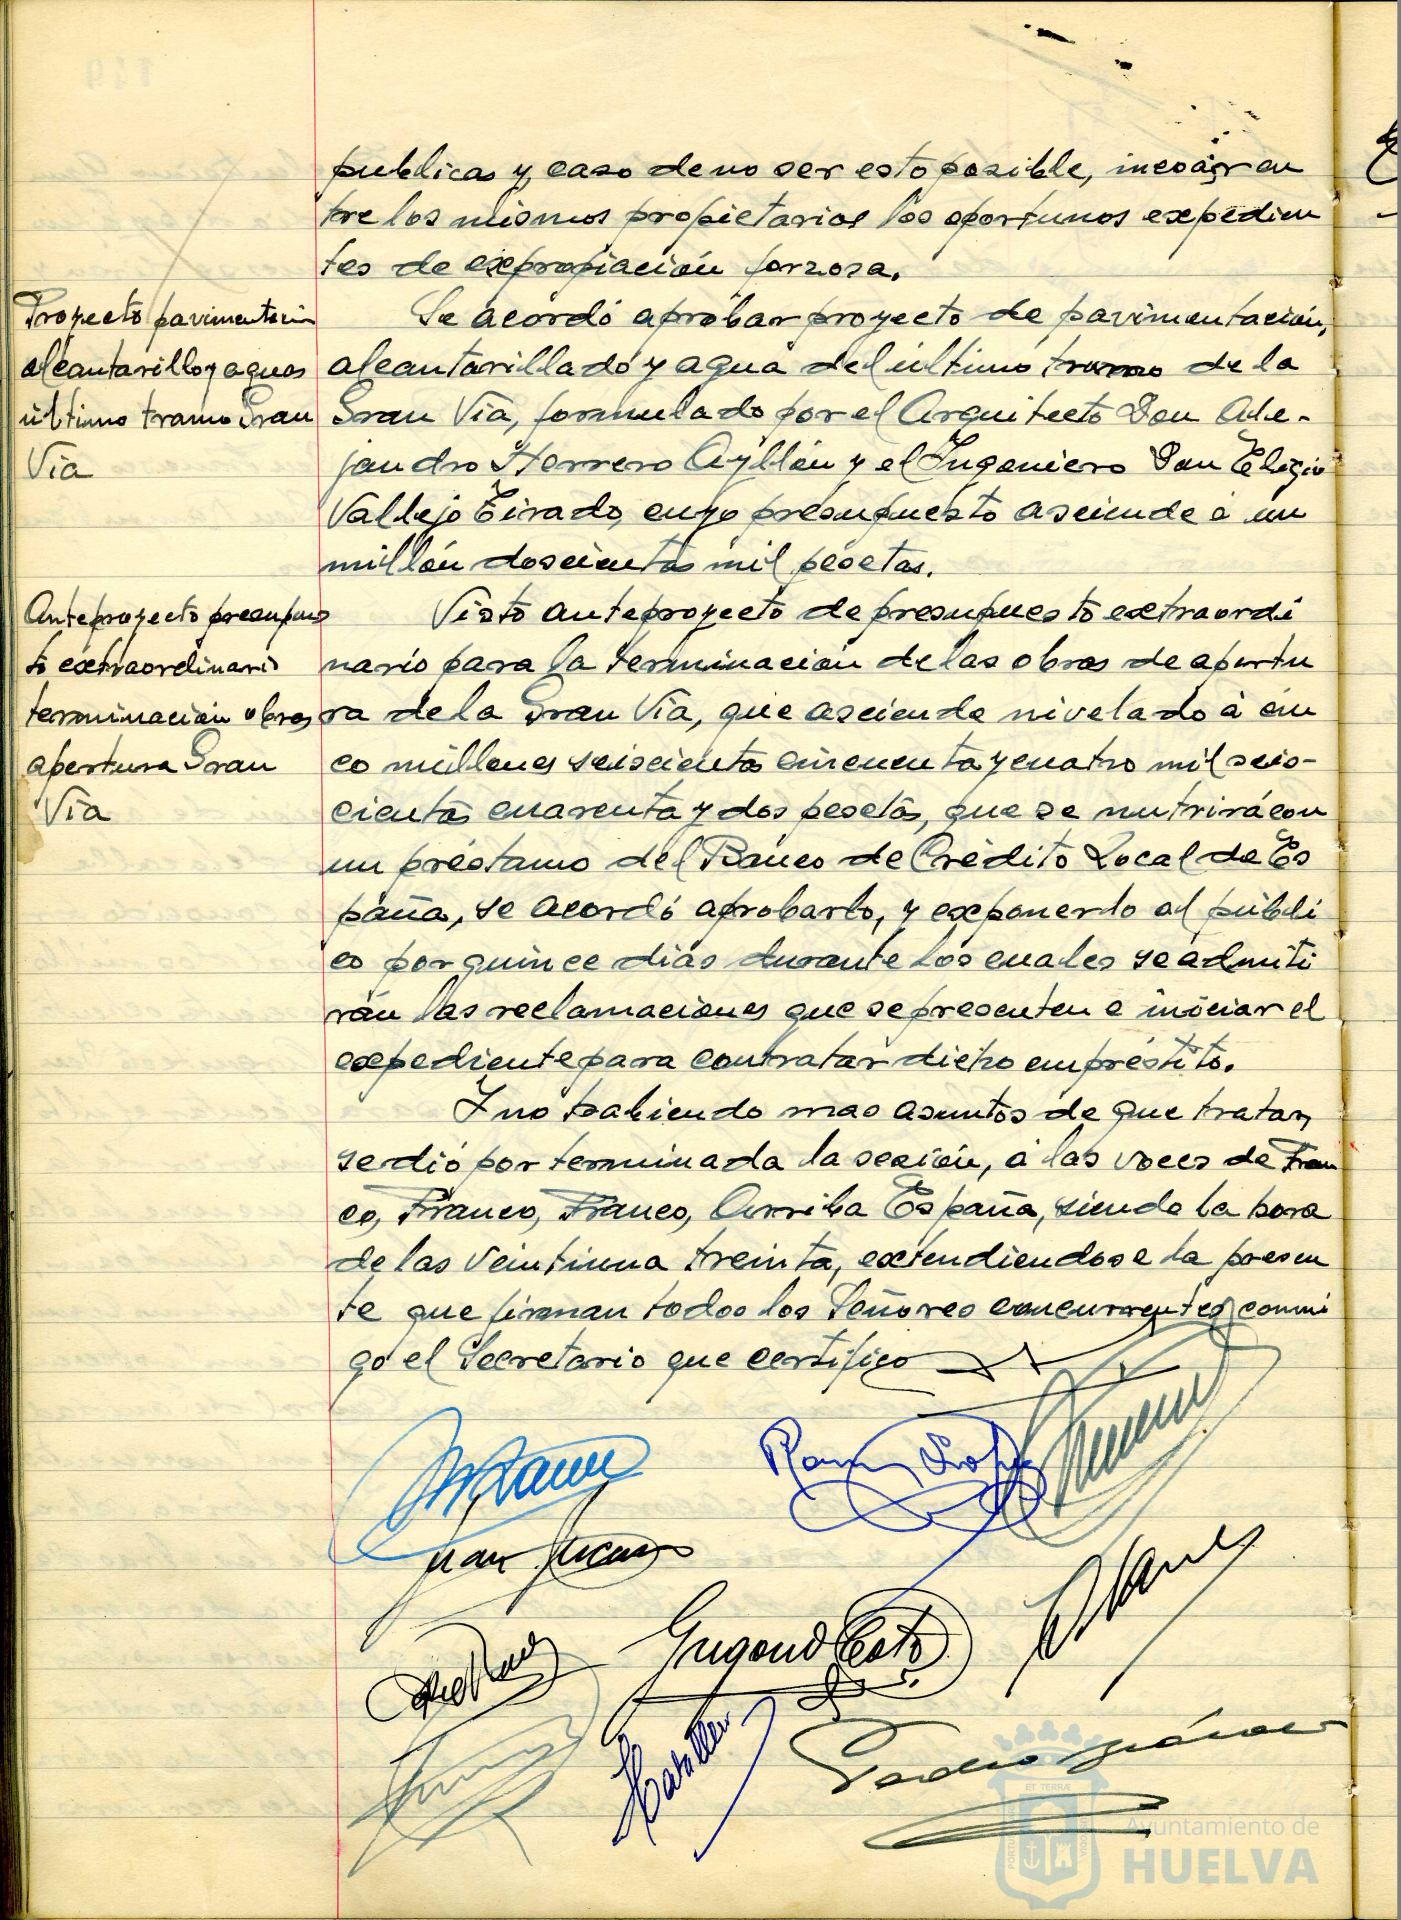 publicas y, caso de no ser esto posible, incoar en
tre los mismos propietarios los oportunos expedien
tes de expropiación forzosa.
Proyecto pavimentación
alcantarillo y aguas
último tramo Gran
Vía
Se acordó aprobar proyecto de pavimentación,
alcantarillado y agua del último tramo de la
Gran Vía, formulado por el Arquitecto Don Ale-
jandro Herrero Ayllón y el Ingeniero Don Eligio
Vallejo Tirado, cuyo presupuesto asciende á un
millón doscientas mil pesetas.
Anteproyecto presupues
to extraordinario
terminación obras
apertura Gran
Vía
Visto anteproyecto de presupuesto extraordi
nario para la terminación de las obras de apertu
ra de la Gran Vía, que asciende nivelado á cin
co millones seiscientas cincuenta y cuatro mil seis-
cientas cuarenta y dos pesetas, que se nutrirá con
un préstamo del Banco de Crédito Local de Es
paña, se acordó aprobarlo, y exponerlo al públi
co por quince días durante los cuales se admiti
rán las reclamaciones que se presenten e iniciar el
expediente para contratar dicho empréstito.
Y no habiendo mas asuntos de que tratar,
se dió por terminada la sesión, á las voces de Fran
co, Franco, Franco, Arriba España, siendo la hora
de las veintiuna treinta, extendiendose la presen
te que firman todos los Señores concurrentes conmi
go el Secretario que certifico
ET TERRÆ
Ayuntamiento de
HUELVA